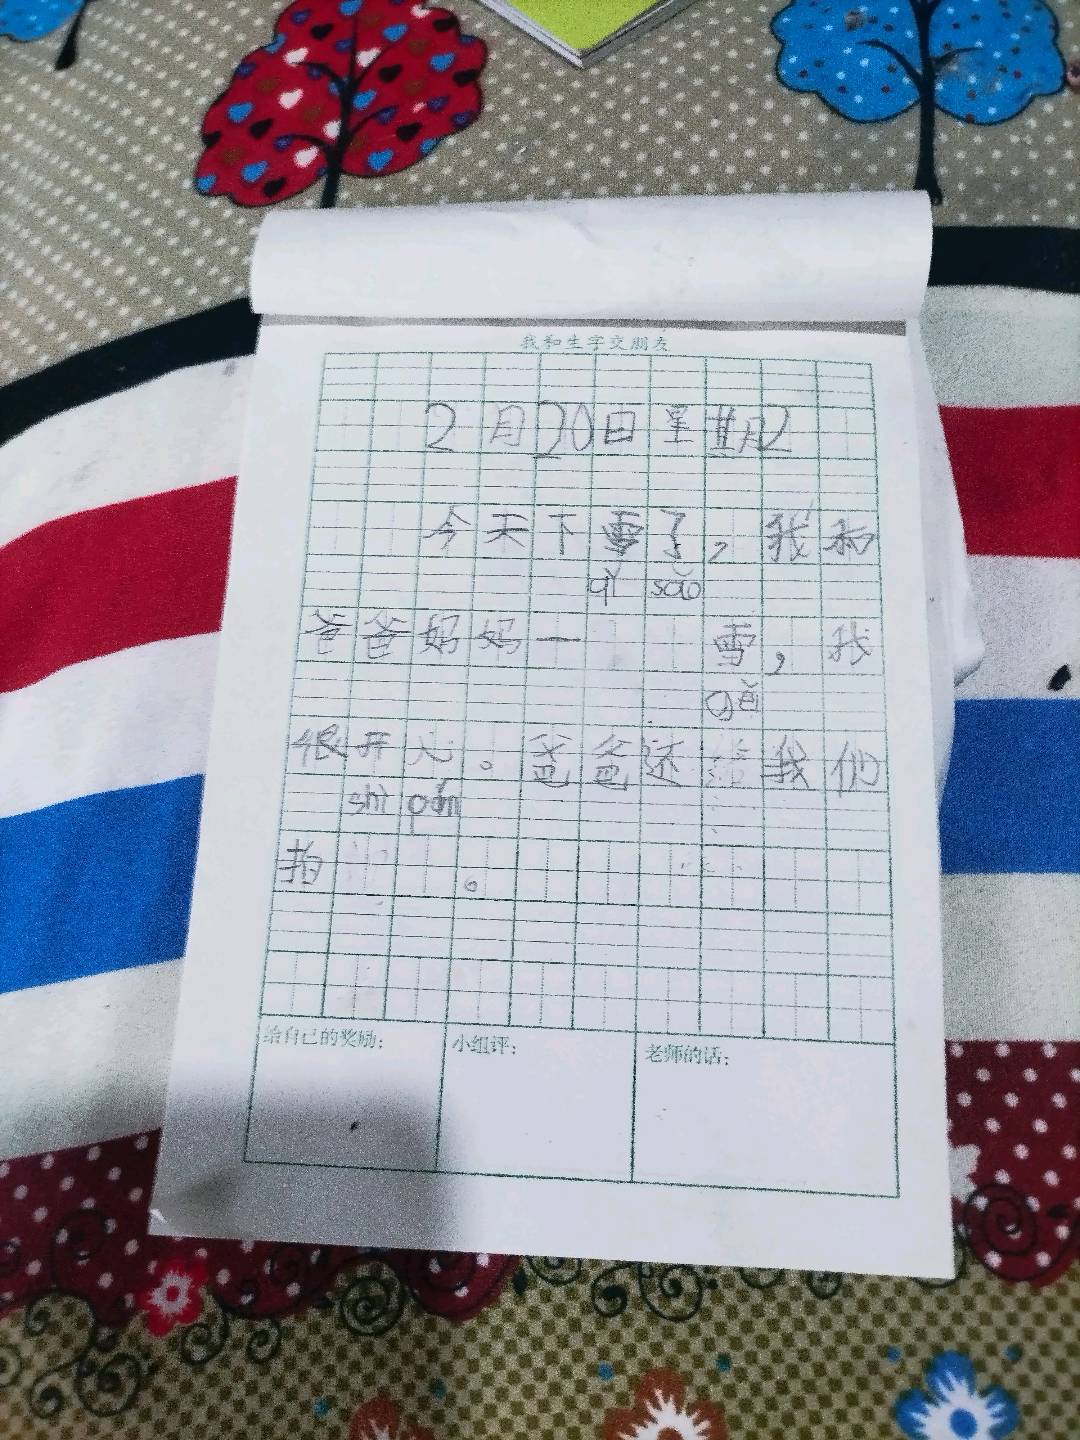 我和生字交朋友
2月20日星期2
今天下雪了，我和
qǐ sǎo
爸爸妈妈一 雪，我
gěi
很开心。爸爸还给我们
shì pín
拍 。
给自己的奖励：
小组评：
老师的话：